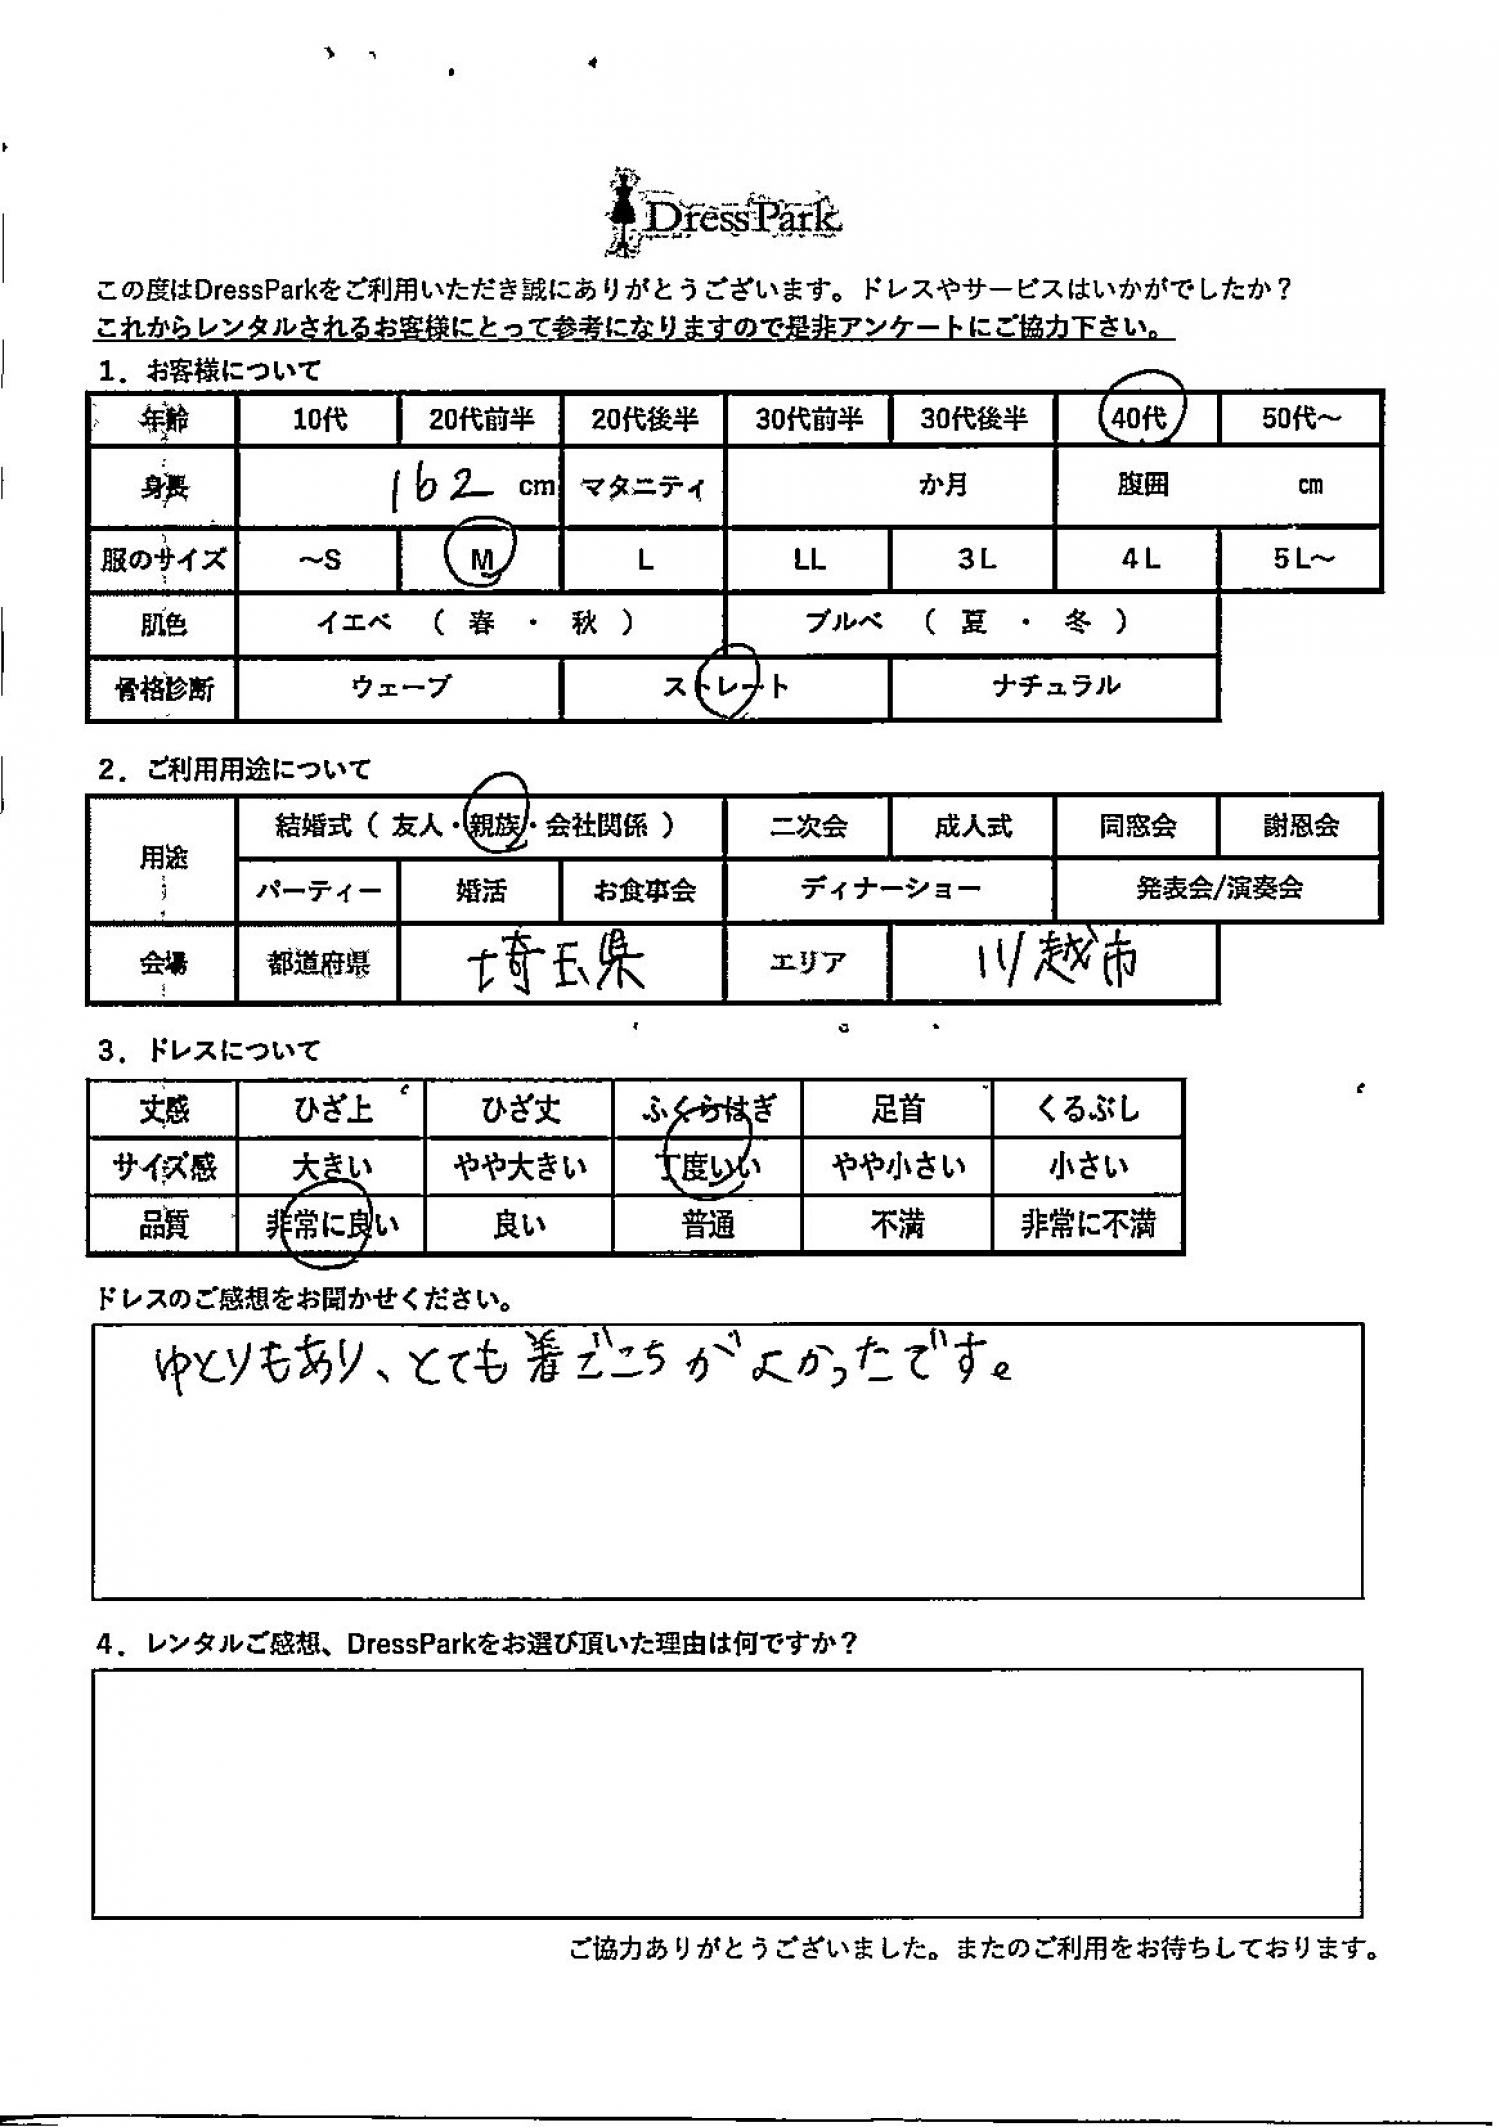 DressPark
この度はDressParkをご利用いただき誠にありがとうございます。ドレスやサービスはいかがでしたか？
これからレンタルされるお客様にとって参考になりますので是非アンケートにご協力下さい。
1．お客様について
年齢 10代 20代前半 20代後半 30代前半 30代後半 40代 50代～
身長 162 cm マタニティ か月 腹囲 cm
服のサイズ ～S M L LL 3L 4L 5L～
肌色 イエベ （ 春 ・ 秋 ） ブルベ （ 夏 ・ 冬 ）
骨格診断 ウェーブ ストレート ナチュラル
2．ご利用用途について
用途 結婚式（ 友人・親族・会社関係 ） 二次会 成人式 同窓会 謝恩会
パーティー 婚活 お食事会 ディナーショー 発表会/演奏会
会場 都道府県 埼玉県 エリア 川越市
3．ドレスについて
丈感 ひざ上 ひざ丈 ふくらはぎ 足首 くるぶし
サイズ感 大きい やや大きい 丁度いい やや小さい 小さい
品質 非常に良い 良い 普通 不満 非常に不満
ドレスのご感想をお聞かせください。
ゆとりもあり、とても着ごこちがよかったです。
4．レンタルご感想、DressParkをお選び頂いた理由は何ですか？
ご協力ありがとうございました。またのご利用をお待ちしております。